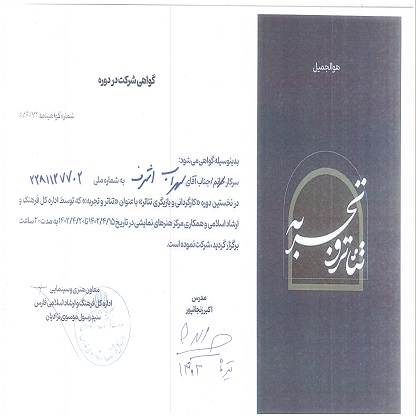 هوالجمیل
تئاتر و تجربه
گواهی شرکت در دوره
شماره گواهینامه:
بدینوسیله گواهی می‌شود:
سرکار خانم/جناب آقای سهراب اشرف به شماره ملی ۲۲۸۱۱۲۷۷۰۲
در نخستین دوره «کارگردانی و بازیگری تئاتر» با عنوان «تئاتر و تجربه» که توسط اداره کل فرهنگ و
ارشاد اسلامی و همکاری مرکز هنرهای نمایشی در تاریخ ۱۴۰۲/۴/۱۵ تا ۱۴۰۲/۴/۲۰ به مدت ۲۰ ساعت
برگزار گردید، شرکت نموده است.
مدرس
اکبر زنجانپور
تیرماه
۱۴۰۲
معاون هنری و سینمایی
اداره کل فرهنگ و ارشاد اسلامی فارس
سید رسول موسوی نژادیان